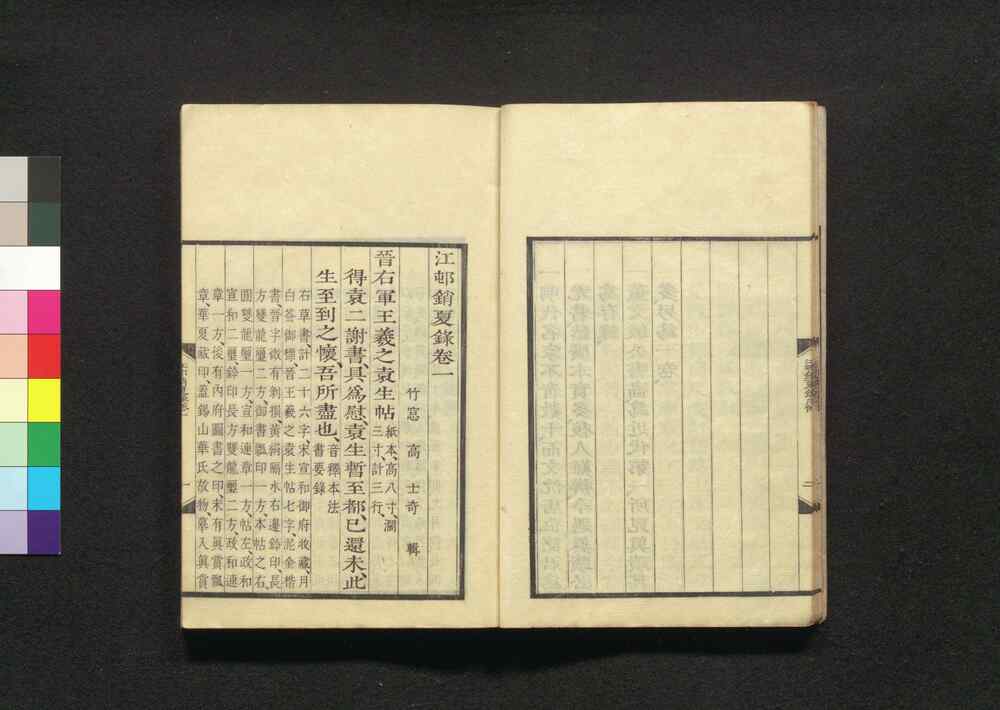 江邨銷夏錄卷一
竹窓 高 士奇 輯
晉右軍王羲之袁生帖 紙本、高八寸、濶
三寸、計三行、
得袁二謝書、具爲慰、袁生暫至都、已還未、此
生至到之懷、吾所盡也、音釋本法
書要錄
右草書、計二十六字、宋宣和御府收藏、月
白簽、御標晉王羲之袁生帖七字、泥金楷
書、晉字微有剝損、黃絹隔水、右邊鈐印長
方雙龍璽二方、御書瓢印一方、本帖之右、
圓雙龍璽一方、宣和連章一方、帖左政和
宣和二璽、鈐印長方雙龍璽二方、政和連
章一方、後有內府圖書之印、末有眞賞瓢
章、華夏祓印、盖錫山華氏故物、摹入眞賞